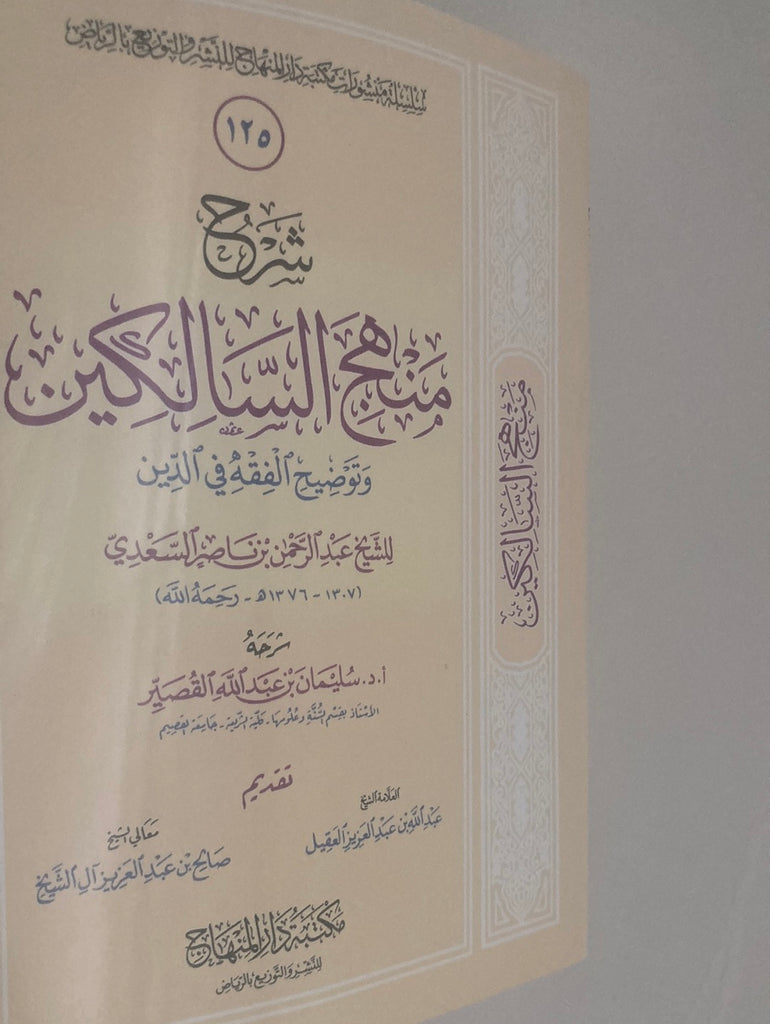 سلسلة منشورات مكتبة دار المنهاج للنشر والتوزيع بالرياض
١٢٥
شرح
مَنْهَجِ السَّالِكِين
وَتَوْضِيحِ الْفِقْهِ فِي الدِّين
لِلشَّيْخِ عَبْدِ الرَّحْمٰنِ بْنِ نَاصِرِ السَّعْدِيّ
(١٣٠٧ - ١٣٧٦هـ - رَحِمَهُ اللَّه)
شَرَحَهُ
أ.د. سُلَيْمَان بْن عَبْدِ اللَّه القُصَيِّر
الأستاذ بقسم السُّنَّة وعلومها - كلية الشريعة - جامعة القصيم
تقديم
العلامة الشيخ
عَبْدِ اللَّه بْن عَبْدِ العَزِيزِ العَقِيل
معالي الشيخ
صَالِح بْن عَبْدِ العَزِيز آلِ الشَّيْخ
مَكْتَبَةُ دَارِ المِنْهَاج
لِلنَّشْرِ وَالتَّوْزِيعِ بِالرِّيَاض
مَنْهَج السَّالِكِين